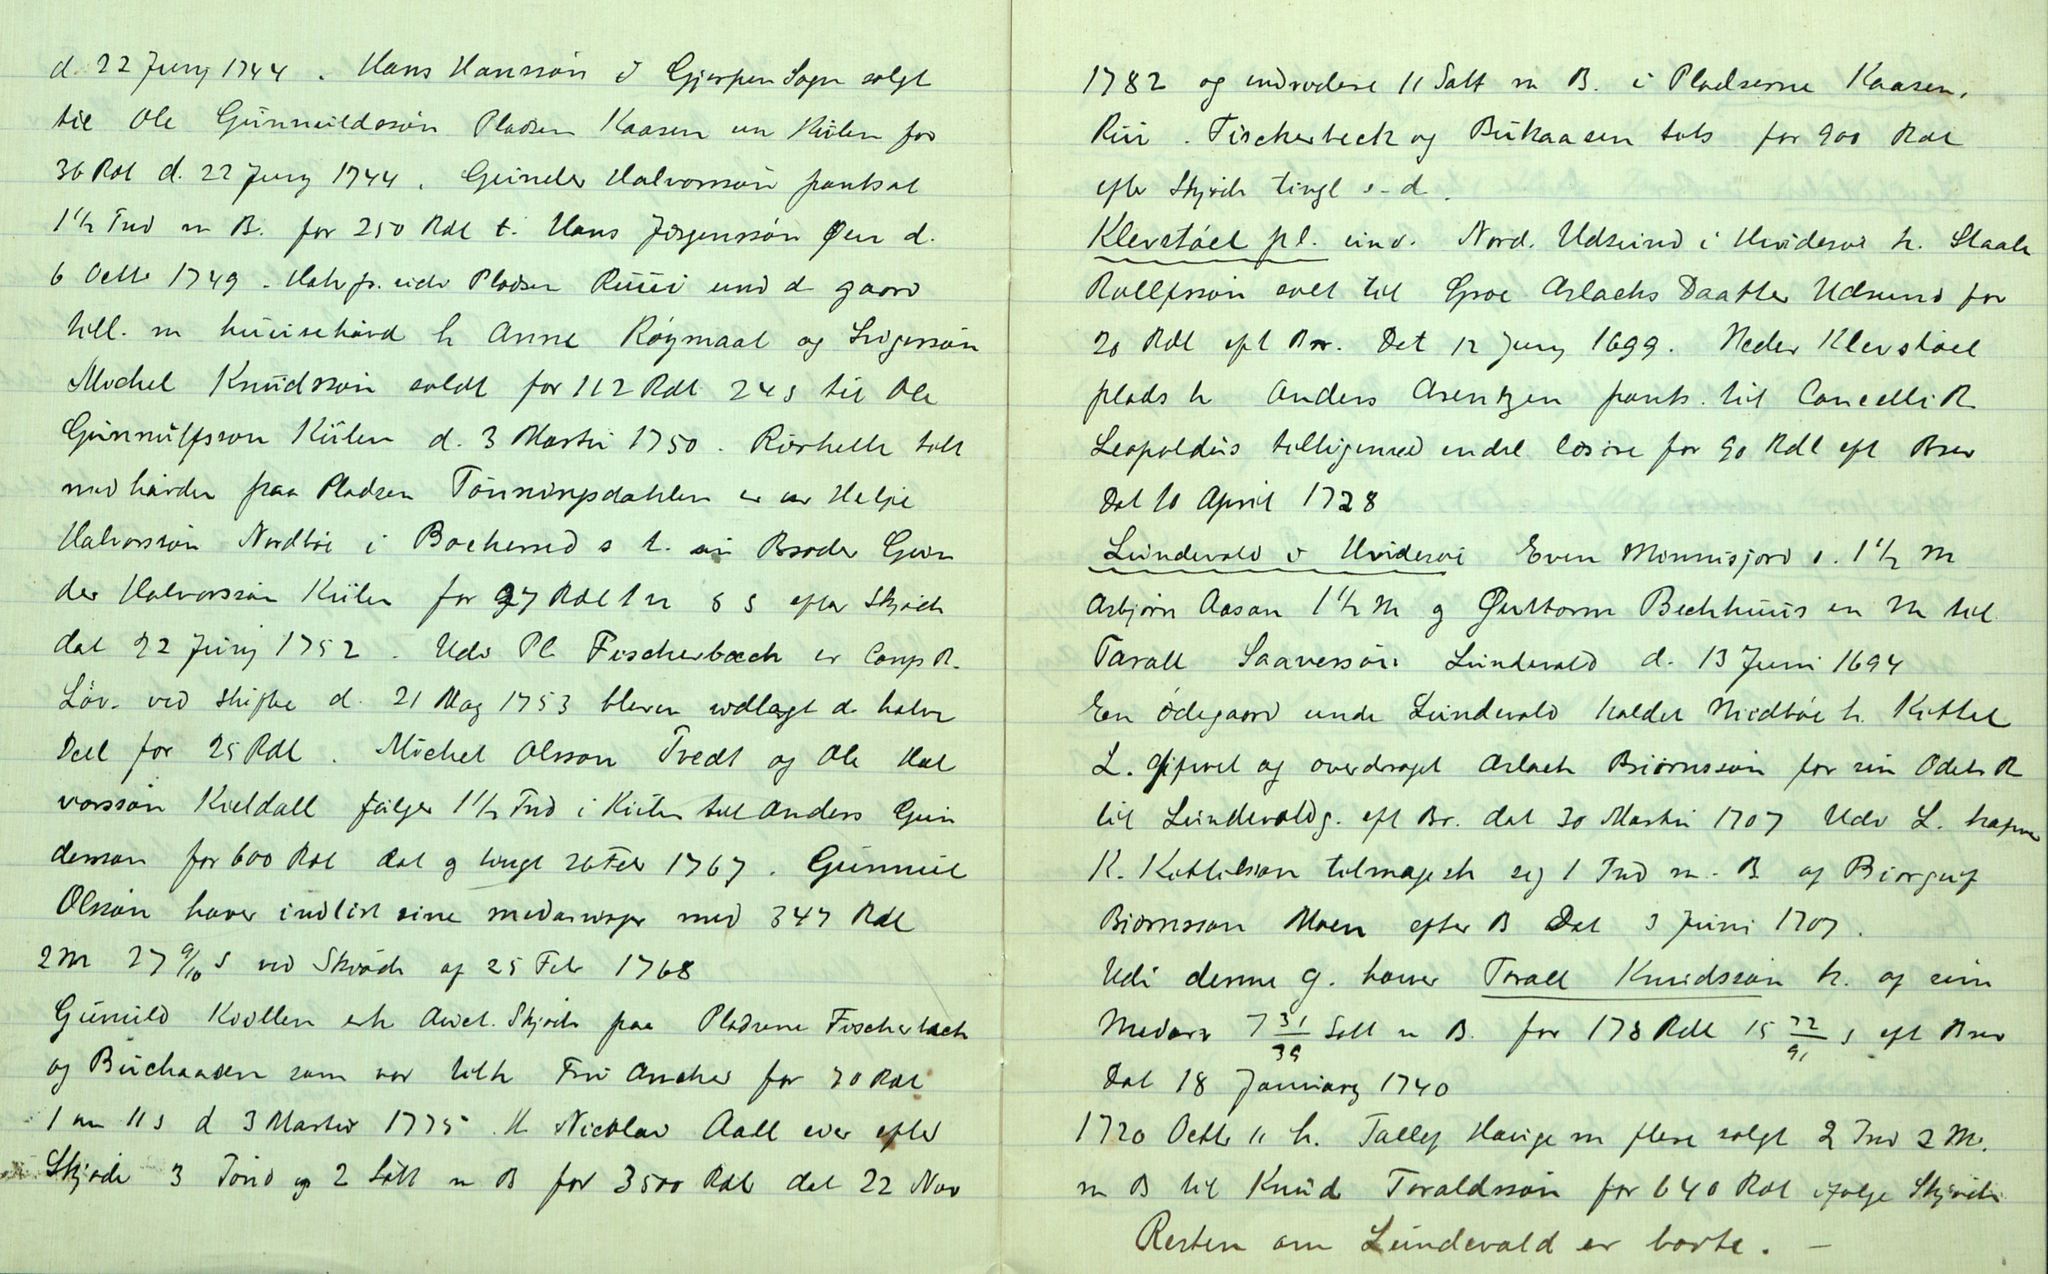 d. 22 Juny 1744. Hans Hanssøn i Gjerpen Sogn solgt
til Ole Gunnuldssøn Pladsen Kaasen un Kiilen for
36 Rdl d. 22 Juny 1744. Gunder Halvorssøn pantsat
1½ Tnd m B. for 250 Rdl t. Hans Jørgenssøn Øen d.
6 Octb 1749. Pladsen Ruui und d gaard
till. m huusehård h Anne Røymaal og
Michel Knudssøn soldt for 112 Rdl 24 s til Ole
Gunnulfsson Kiilen d. 3 Martii 1750.
med hården paa Pladsen Tønningsdahlen er av Helje
Halvorssøn Nordbøe i Bøeherred s t. sin Broder Gun
der Halvorssøn Kiilen for 97 Rdl 1 m 8 s efter Skjøde
dat 22 Juny 1752. Udi Pl. Fischerbæck er Canc R.
Løv. ved skifte d. 21 May 1753 bleven udlagt d. halve
Deel for 25 Rdl. Michel Olsson Tvedt og Ole Hal
vorssøn Kieldall sælger 1½ Tnd i Kiilen til Anders Gun
derson for 600 Rdl dat g tingl 26 Feb 1767. Gunnul
Olssøn haver indløst sine medarvinger med 347 Rdl
2 m 27 9/10 s ved Skiøde af 25 Feb 1768
Gunuld Kiillen erh Auct. Skjøde paa Pladsene Fischerbæck
og Buchaasen som var tilh Fru Ancher for 70 Rdl
1 m 11 s d 3 Martii 1775. H Nicolai Aall eier efter
Skjøde 3 Tønd og 2 Sott m B for 3500 Rdl dat 22 Nov
1782 og endvidere 11 Sott m B. i Pladserne Kaasen,
Rui. Fischerbeck og Bukaasen tols for 900 Rdl
efter Skjøde tingl s-d.
Klevstøel pl. und. Nord. Udsund i Hvidesøi h. Staale
Rollfssøn solt til Groe Aslachs Daatter Udsund for
20 Rdl eft Brv. Det 12 Juny 1699. Neder Klevstøel
plads h Anders Arentzen pants. til Cancelli R
Leopoldus tilligemed endel løsøre for 90 Rdl eft Brev
Dat 10 April 1728
Lundevald i Hvidesøi Even Minnisjord s. 1½ M
Asbjørn Aasan 1½ M g Guttorm Beckhuus en M til
Tarall Saaverssøn Lundevald d. 13 Juni 1694
En ødegaard unde Lundevald kaldet Midbøe h. Kittel
L. afgivet og overdraget Aslach Biørnssøn for sin Odels R
til Lundevold g. eft Br. dat 30 Martii 1707 Udi L. hafver
K. Kittilsøn tilmagesk sig 1 Tnd m. B. af Biørguf
Biørnssøn Moen efter B Dat 3 Juni 1707.
Udi denne g. haver Torall Knudssøn k. af sin
Medarv 7 31/39 Sott m B. for 178 Rdl 15 72/91 s eft Brev
Dat 18 January 1740
1720 Octb 11 h. Tallef Hauge m flere solgt 2 Tnd 2 M.
m B til Knud Toraldssøn for 640 Rdl ifølge Skjøde
Resten om Lundevald er borte. —